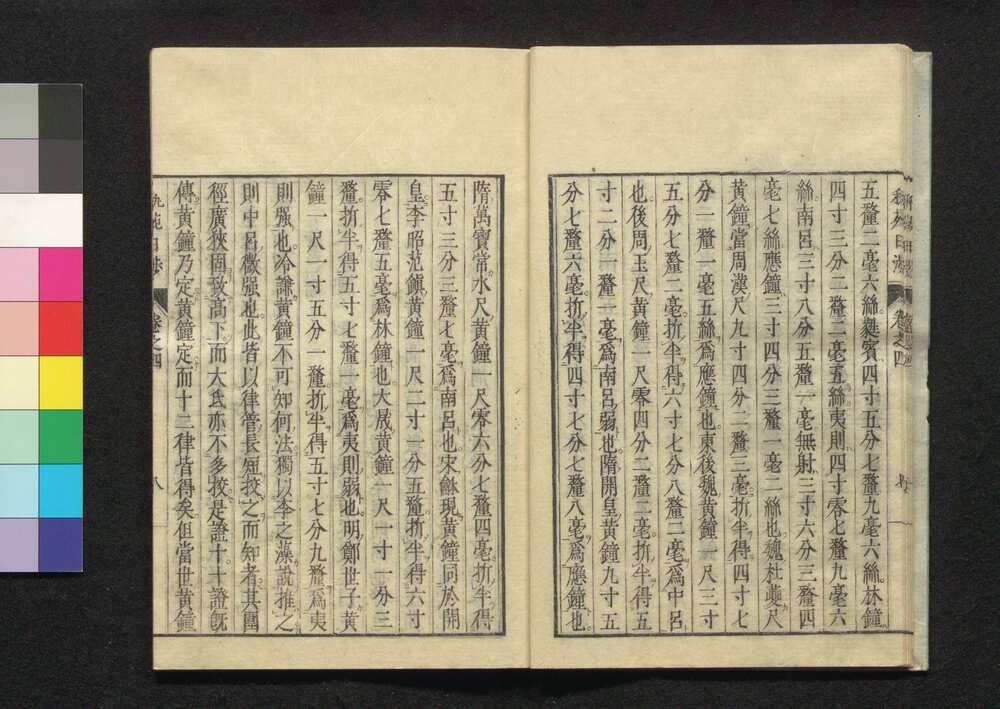 五釐二毫六絲蕤賓四寸五分七釐九毫六絲林鐘
四寸三分二釐二毫五絲夷則四寸零七釐九毫六
絲南呂三寸八分五釐一毫無射三寸六分三釐四
毫七絲應鐘三寸四分三釐一毫二絲也魏杜夔尺
黃鐘當周漢尺九寸四分二釐三毫折半得四寸七
分一釐一毫五絲爲應鐘也東後魏黃鐘一尺三寸
五分七釐二毫折半得六寸七分八釐二毫爲中呂
也後周玉尺黃鐘一尺零四分二釐二毫折半得五
寸二分一釐一毫爲南呂弱也隋開皇黃鐘九寸五
分七釐六毫折半得四寸七分七釐八毫爲應鐘也
隋萬寶常水尺黃鐘一尺零六分七釐四毫折半得
五寸三分三釐七毫爲南呂也宋龢現黃鐘同於開
皇李昭范鎭黃鐘一尺二寸一分五釐折半得六寸
零七釐五毫爲林鐘也大晟黃鐘一尺一寸一分三
釐折半得五寸七釐一毫爲夷則弱也明鄭世子黃
鐘一尺一寸五分一釐折半得五寸七分九釐爲夷
則强也冷謙黃鐘不可知何法獨以李之藻說推之
則中呂微强也此皆以律管長短挍之而知者其圍
徑廣狹固致高下而大氐亦不多挍是證十二證旣
傳黃鐘乃定黃鐘定而十二律皆得矣但當世黃鐘
卷之四
八